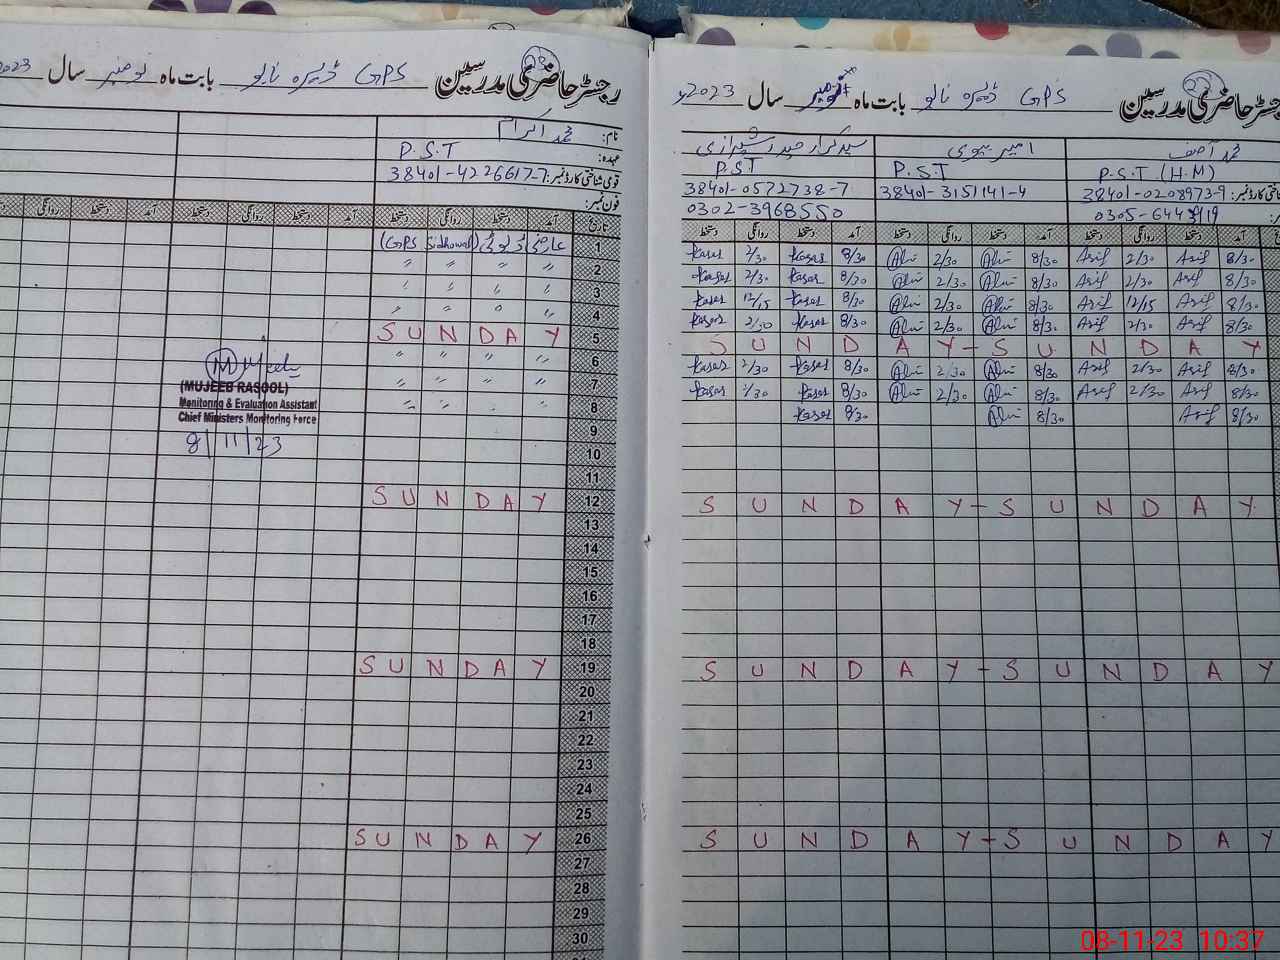 رجسٹر حاضری مدرسین GPS ڈیرہ نالو بابت ماہ نومبر سال 2023
نام: محمد اکرام
عہدہ: P.S.T
قومی شناختی کارڈ نمبر: 38401-4226617-7
فون نمبر:
تاریخ آمد دستخط روانگی دستخط آمد دستخط روانگی دستخط آمد دستخط روانگی دستخط
1 عارضی ڈیوٹی (GPS Sidhowal)
2 〃 〃 〃 〃
3 〃 〃 〃 〃
4 〃 〃 〃 〃
5 SUNDAY
6 〃 〃 〃 〃
7 〃 〃 〃 〃
8 〃 〃 〃 〃
9
10
11
12 SUNDAY
13
14
15
16
17
18
19 SUNDAY
20
21
22
23
24
25
26 SUNDAY
27
28
29
30
Mujeeb
(MUJEEB RASOOL)
Monitoring & Evaluation Assistant
Chief Ministers Monitoring Force
8/11/23
رجسٹر حاضری مدرسین GPS ڈیرہ نالو بابت ماہ نومبر سال 2023ء
محمد آصف امیر بیوی سید کرار حیدر شیرازی
P.S.T (H.M) P.S.T P.S.T
شناختی کارڈ نمبر: 38401-0208973-9 38401-3151141-4 38401-0572738-7
0302-3968550
آمد دستخط روانگی دستخط آمد دستخط روانگی دستخط آمد دستخط روانگی دستخط
8/30 Asif 2/30 Asif 8/30 Alvi 2/30 Alvi 8/30 Kasar 2/30 Kasar
8/30 Asif 2/30 Asif 8/30 Alvi 2/30 Alvi 8/30 Kasar 2/30 Kasar
8/30 Asif 12/15 Asif 8/30 Alvi 2/30 Alvi 8/30 Kasar 12/15 Kasar
8/30 Asif 2/30 Asif 8/30 Alvi 2/30 Alvi 8/30 Kasar 2/30 Kasar
SUNDAY-SUNDAY
8/30 Asif 2/30 Asif 8/30 Alvi 2/30 Alvi 8/30 Kasar 2/30 Kasar
8/30 Asif 2/30 Asif 8/30 Alvi 2/30 Alvi 8/30 Kasar 2/30 Kasar
8/30 Asif 8/30 Alvi 8/30 Kasar
SUNDAY-SUNDAY
SUNDAY-SUNDAY
SUNDAY-SUNDAY
08-11-23 10:37